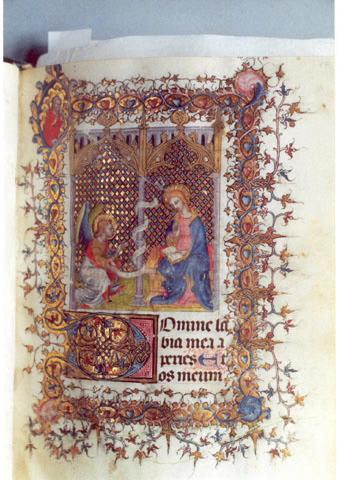 Domine la
bia mea a
peries Et
os meum